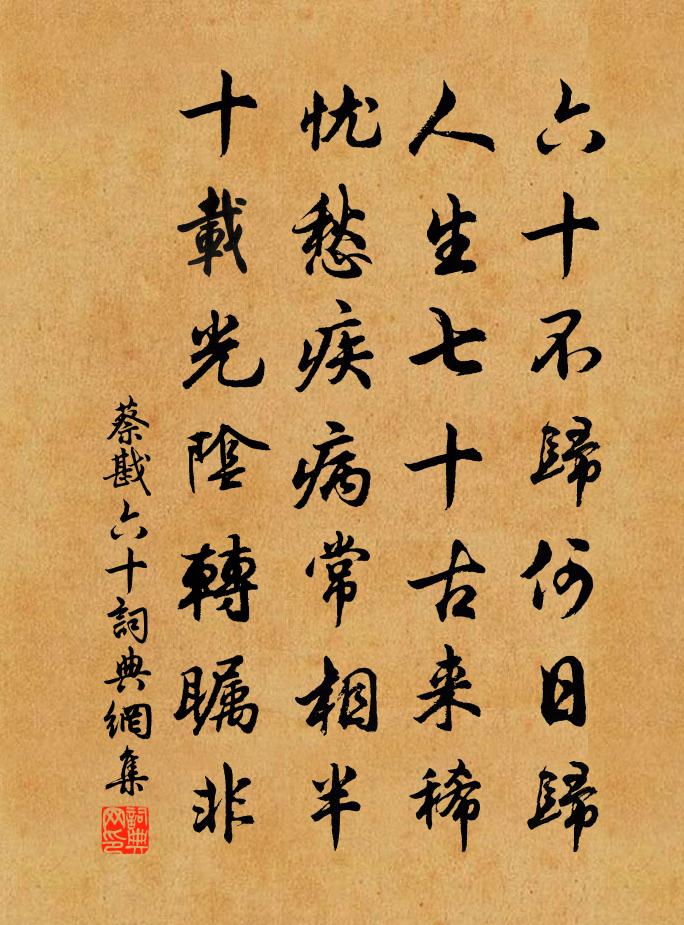 六十不歸何日歸
人生七十古来稀
忧愁疾病常相半
十載光陰轉瞩非
蔡戡六十詞典網集
詞典
网印